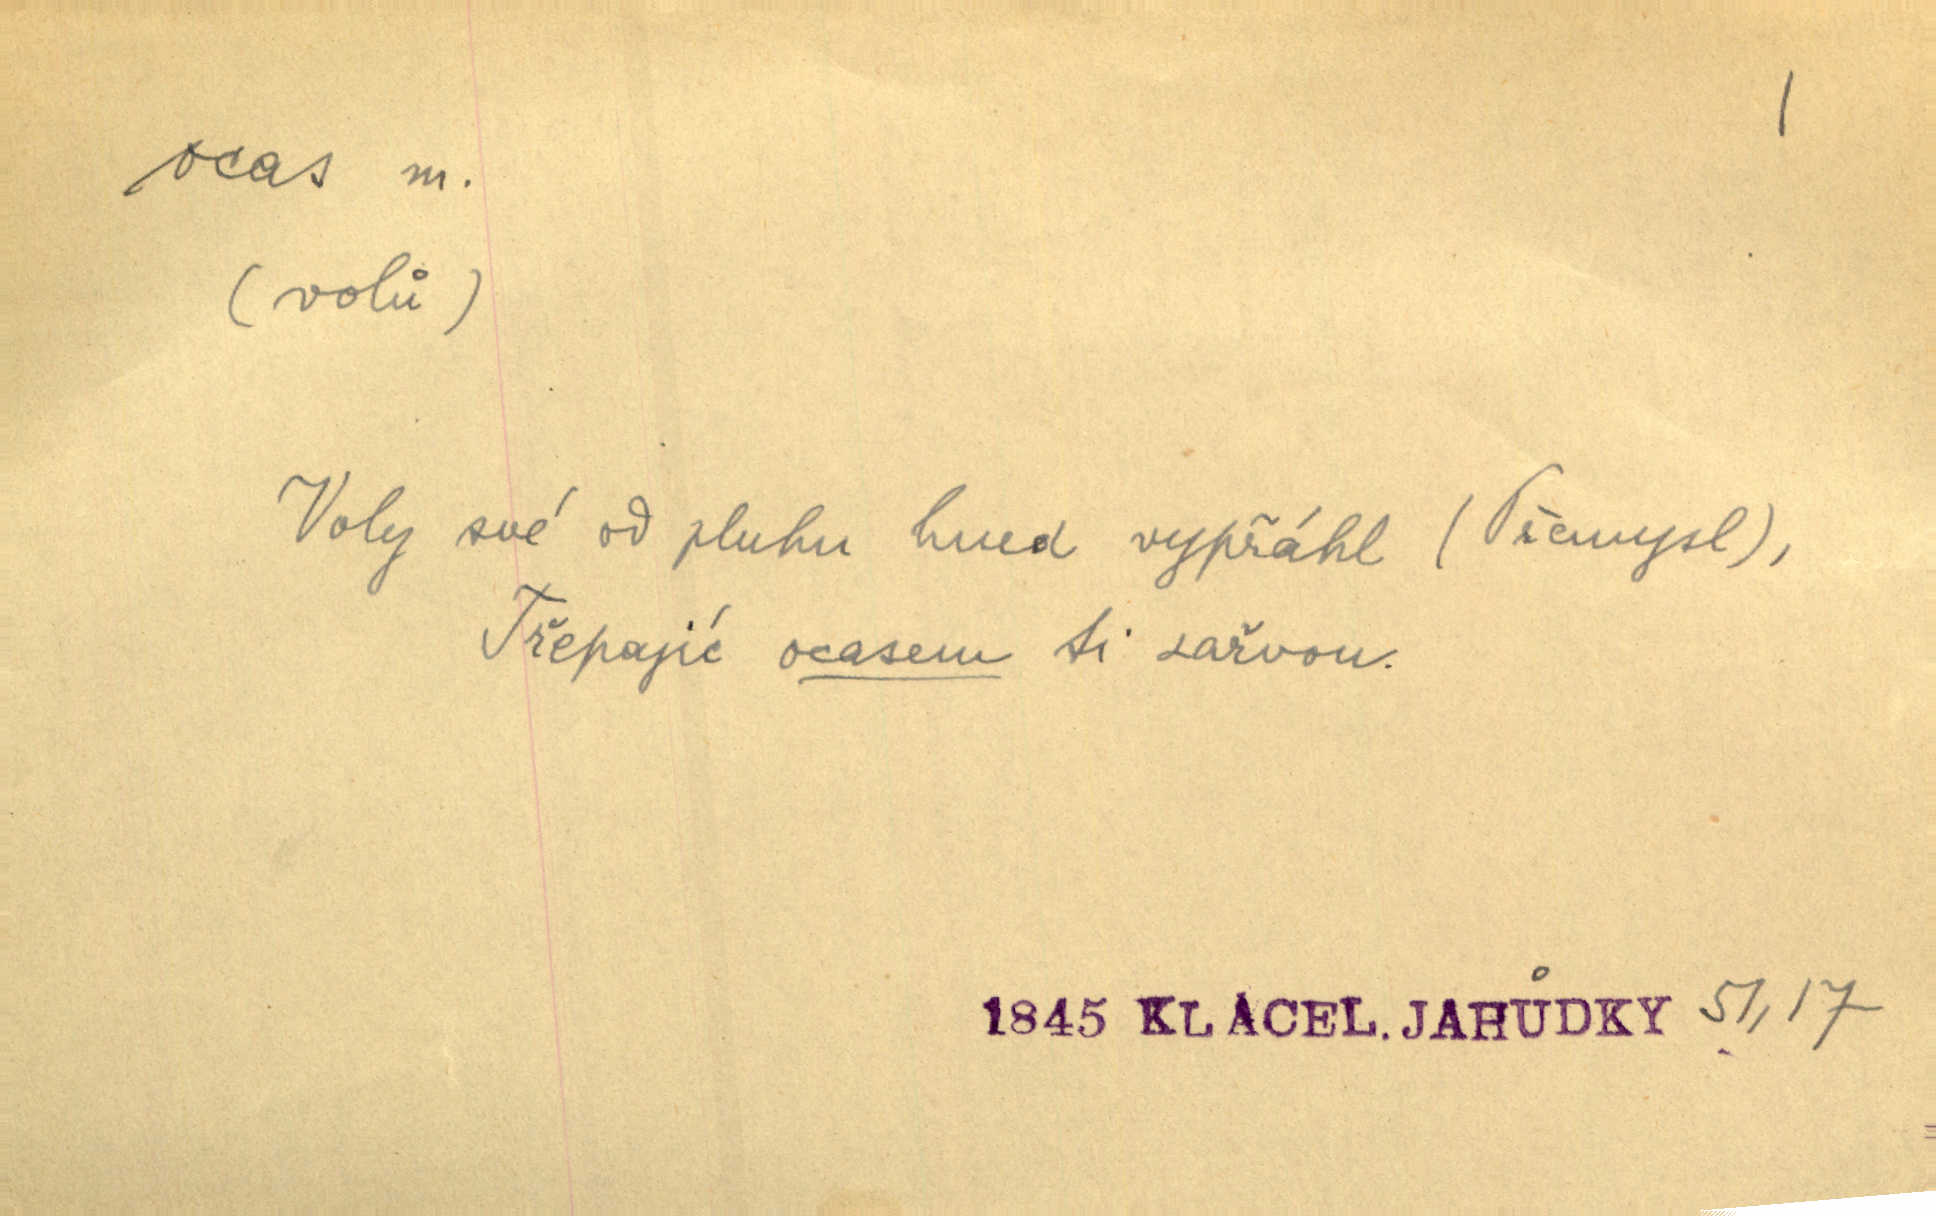 /
ocas m.
(volů)
Voly své od pluhu hned vypřáhl (Přemysl),
Třepajíc ocasem ti zařvou.
1845 KLÁCEL. JAHŮDKY 51,17